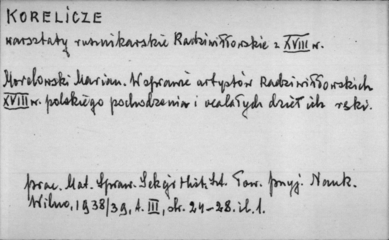 KORELICZE
warsztaty rusnikarskie Radziwiłłowskie z XVIII w.
Morelowski Marian. W sprawie artystów Radziwiłłowskich
XVIII w. polskiego pochodzenia i ocalałych dzieł ich ręki.
prac. Mat. Spraw. Sekcji Hist. Szt. Tow. przyj. Nauk.
Wilno, 1938/39, t. III, str. 24-28. il. 1.